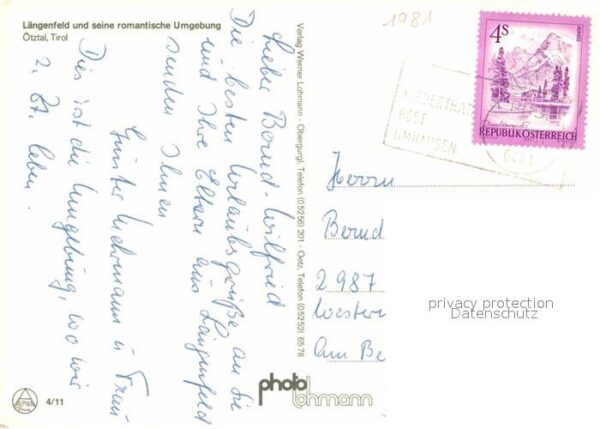 Längenfeld und seine romantische Umgebung
Ötztal, Tirol
1981
4S
REPUBLIK ÖSTERREICH
NIEDERTHAI
POST
UMHAUSEN
6441
Lieber Bernd-Wilfried
Die besten Urlaubsgrüße an Sie
und Ihre Eltern aus Längenfeld
senden Ihnen
Günter u. Frau
Dies ist die Umgebung, wo wir
z. Zt. leben.
Verlag Werner Lohmann - Obergurgl, Telefon (05256) 201 - Oetz, Telefon (05252) 6578
Herrn
Bernd
2987
Wester
Am Be
privacy protection
Datenschutz
photo
lohmann
4/11